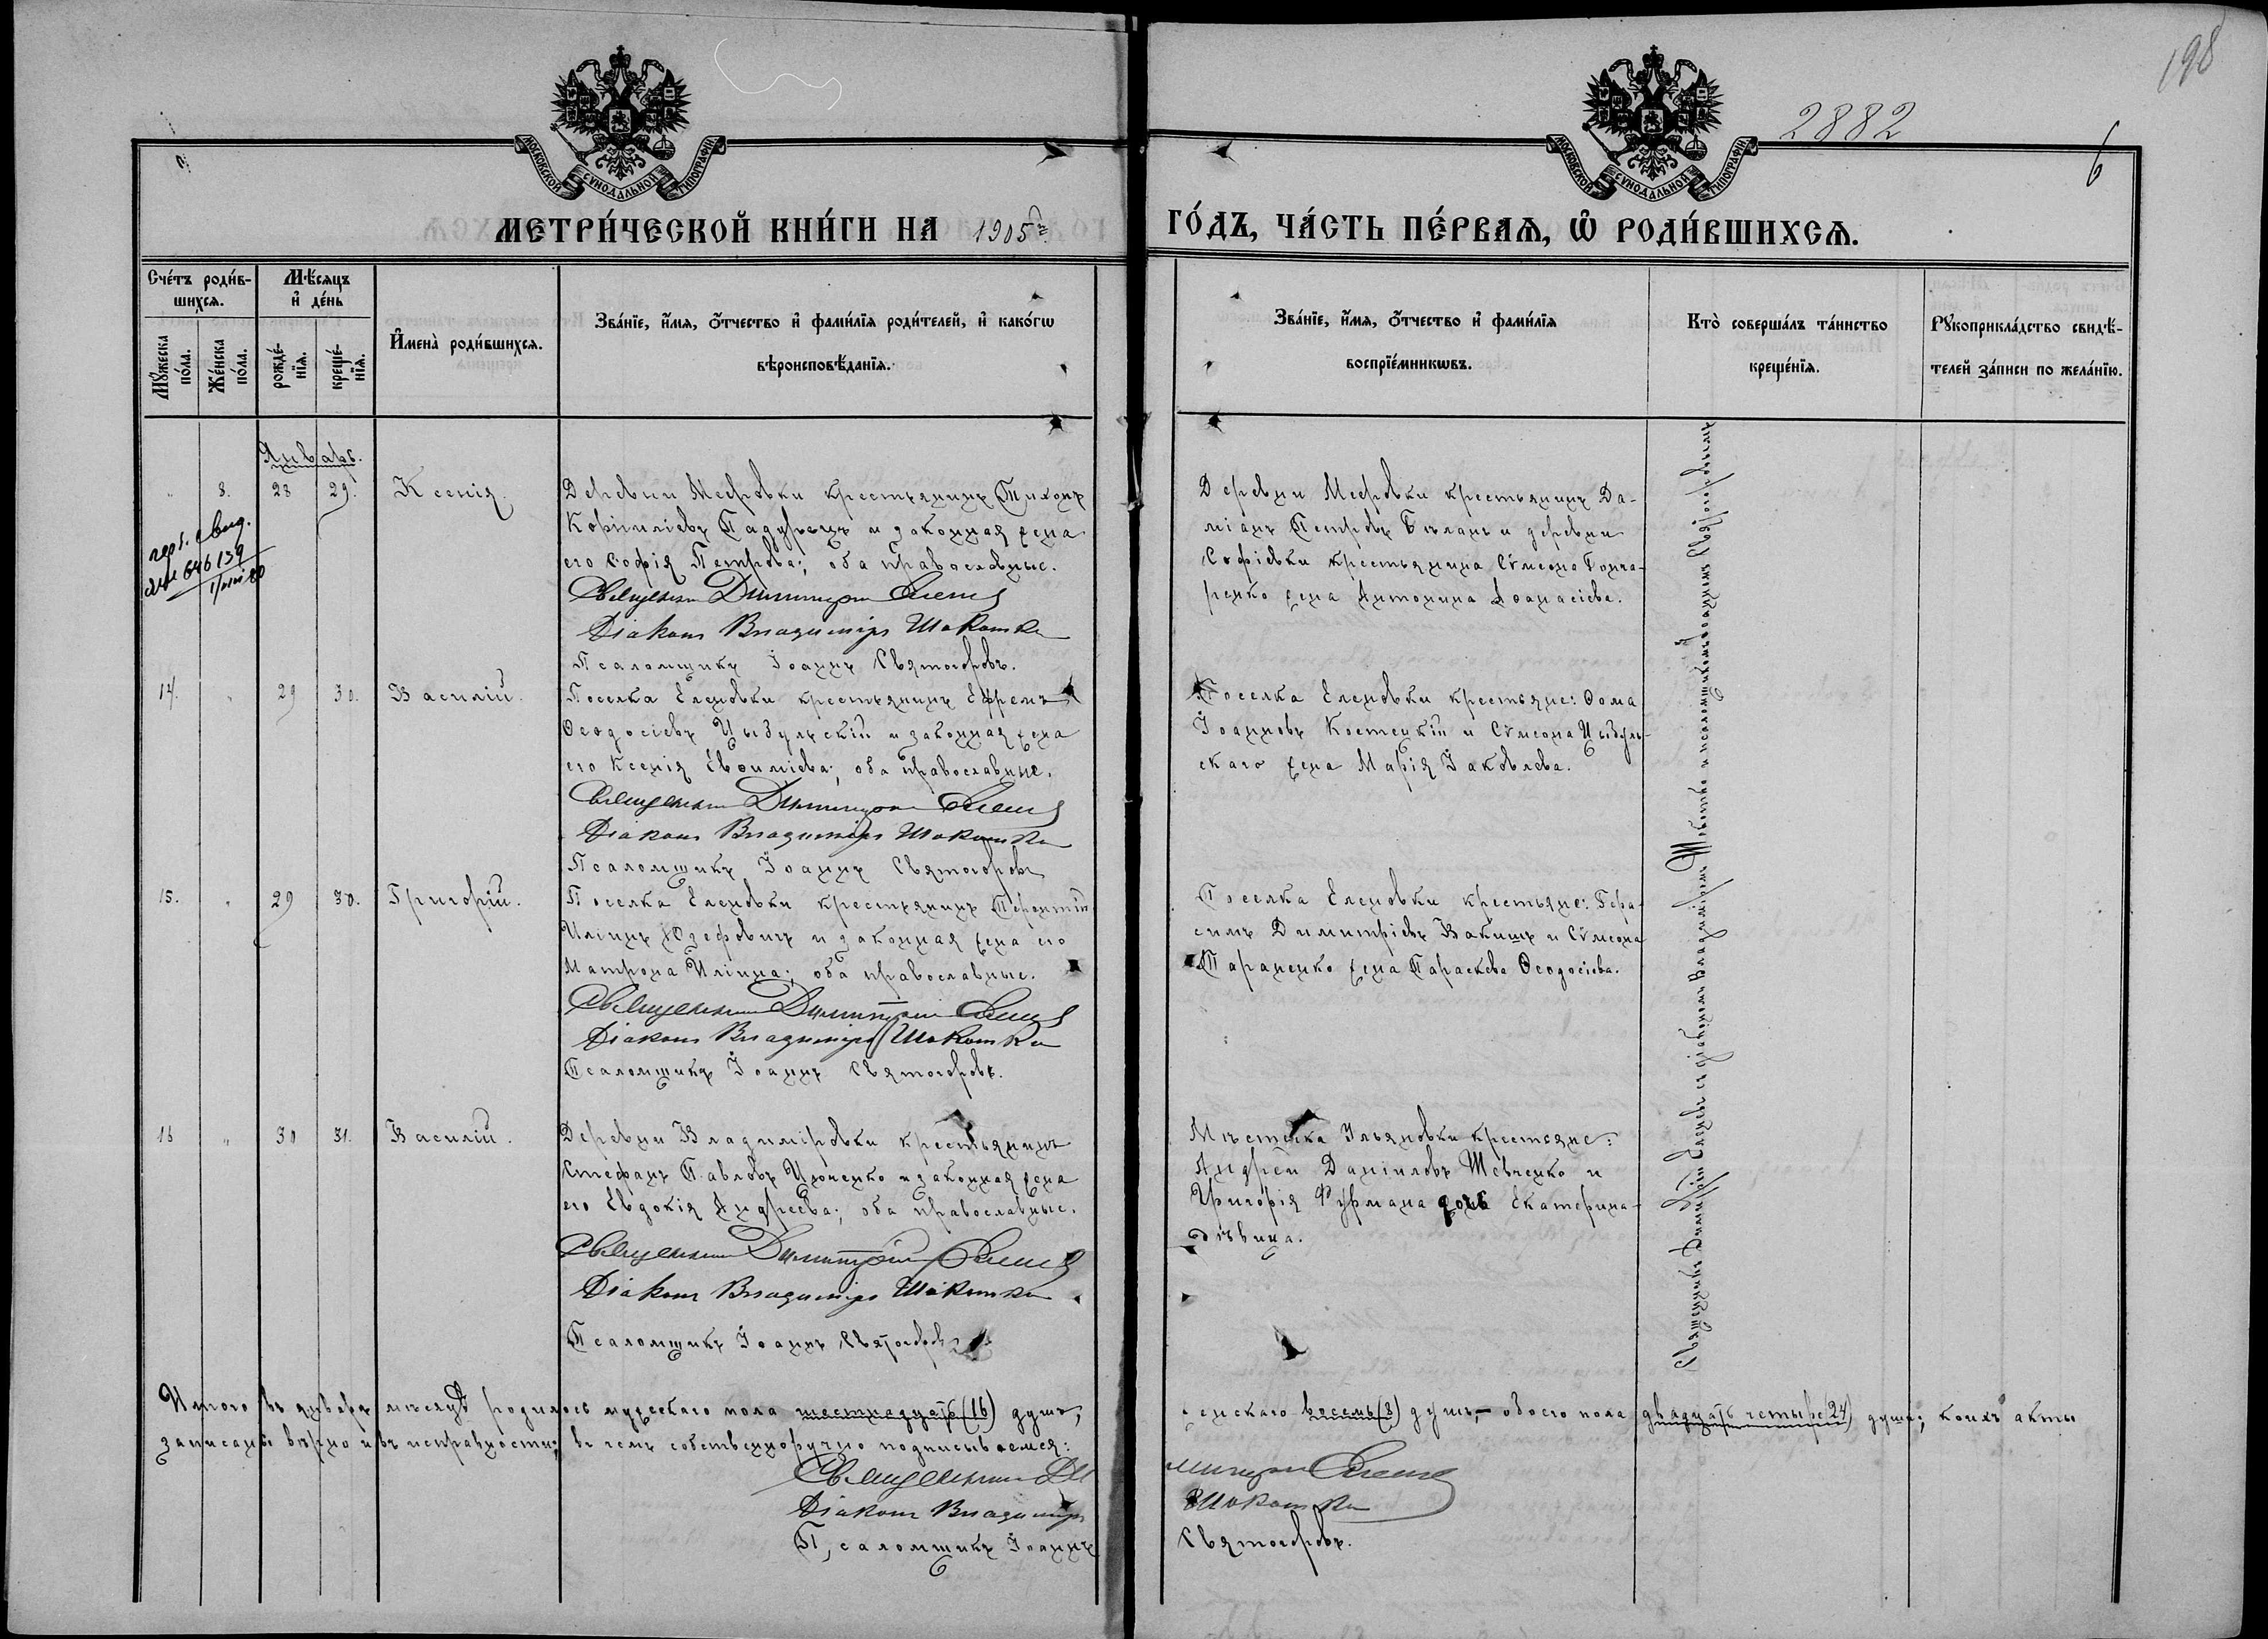 198
2882
6
МОСКОВСКОЙ СѴНОДАЛЬНОЙ ТИПОГРАФІИ
МОСКОВСКОЙ СѴНОДАЛЬНОЙ ТИПОГРАФІИ
МЕТРИ́ЧЕСКОЙ КНИ́ГИ НА 1905й
ГО́ДЪ, ЧА́СТЬ ПЕ́РВАѦ, Ѿ РОДИ́ВШИХСѦ.
Сче́тъ роди́в-
шихсѧ.
Мѣ́сѧцъ
и҆ де́нь
Мꙋ́жеска
по́ла.
Же́нска
по́ла.
рожде́-
нїѧ.
креще́-
нїѧ.
И҆мена̀ роди́вшихсѧ.
Зва́нїе, и҆́мѧ, ѻ҆́тчество и҆ фами́лїѧ роди́телей, и҆ како́гѡ
вѣроисповѣ́данїѧ.
Зва́нїе, и҆́мѧ, ѻ҆́тчество и҆ фами́лїѧ
воспрїе́мникѡвъ.
Кто̀ соверша́лъ та́инство
креще́нїѧ.
Рꙋкоприкла́дство свидѣ́-
телей за́писи по жела́нїю.
Январь.
8. 28 29. Ксенія.
Деревни Мефровки крестьянинъ Тихонъ
Корниліевъ Гадурецъ и законная жена
его Софія Петрова; оба православные.
Священникъ Димитрій Еленевъ
Діаконъ Владиміръ Шокотко
Псаломщикъ Іоаннъ Святогоровъ.
Деревни Мефровки крестьянинъ Да-
міанъ Петровъ Бѣланъ и деревни
Софіевки крестьянина Сѵмеона Гонча-
ренко жена Антонина Аѳанасіева.
перв. свид.
646139
14. 29 30. Василій.
Поселка Еленовки крестьянинъ Ефремъ
Ѳеодосіевъ Цыбульскій и законная жена
его Ксенія Евѳиміева; оба православные.
Священникъ Димитрій Еленевъ
Діаконъ Владиміръ Шокотко
Псаломщикъ Іоаннъ Святогоровъ
Поселка Еленовки крестьяне: Ѳома
Іоанновъ Костецкій и Сѵмеона Цыбуль-
скаго жена Марія Іаковлева.
15. 29 30. Григорій.
Поселка Еленовки крестьянинъ Терентій
Иліинъ Юзефовичъ и законная жена его
Матрона Иліина; оба православные.
Священникъ Димитрій Еленевъ
Діаконъ Владиміръ Шокотко
Псаломщикъ Іоаннъ Святогоровъ.
Поселка Еленовки крестьяне: Гера-
симъ Димитріевъ Вакишъ и Сѵмеона
Тараненко жена Параскева Ѳеодосіева.
16 30 31. Василій.
Деревни Владиміровки крестьянинъ
Стефанъ Павловъ Ильченко и законная жена
его Евдокія Андреева; оба православные.
Священникъ Димитрій Еленевъ
Діаконъ Владиміръ Шокотко
Псаломщикъ Іоаннъ Святогоровъ
Мѣстечка Ульяновки крестьяне:
Андрей Даніиловъ Шевченко и
Григорія Фурмана дочь Екатерина-
дѣвица.
Священникъ Димитрій Еленевъ съ діакономъ Владиміромъ Шокотко и псаломщикомъ Іоанномъ Святогоровымъ
Итого въ январѣ мѣсяцѣ родилось мужескаго пола шестнадцать (16) душъ,
женскаго восемь (8) душъ,- обоего пола двадцать четыре (24) души; коихъ акты
записаны вѣрно и въ исправности; въ чемъ собственноручно подписываемся:
Священникъ Димитрій Еленевъ
Діаконъ Владиміръ Шокотко
Псаломщикъ Іоаннъ Святогоровъ.